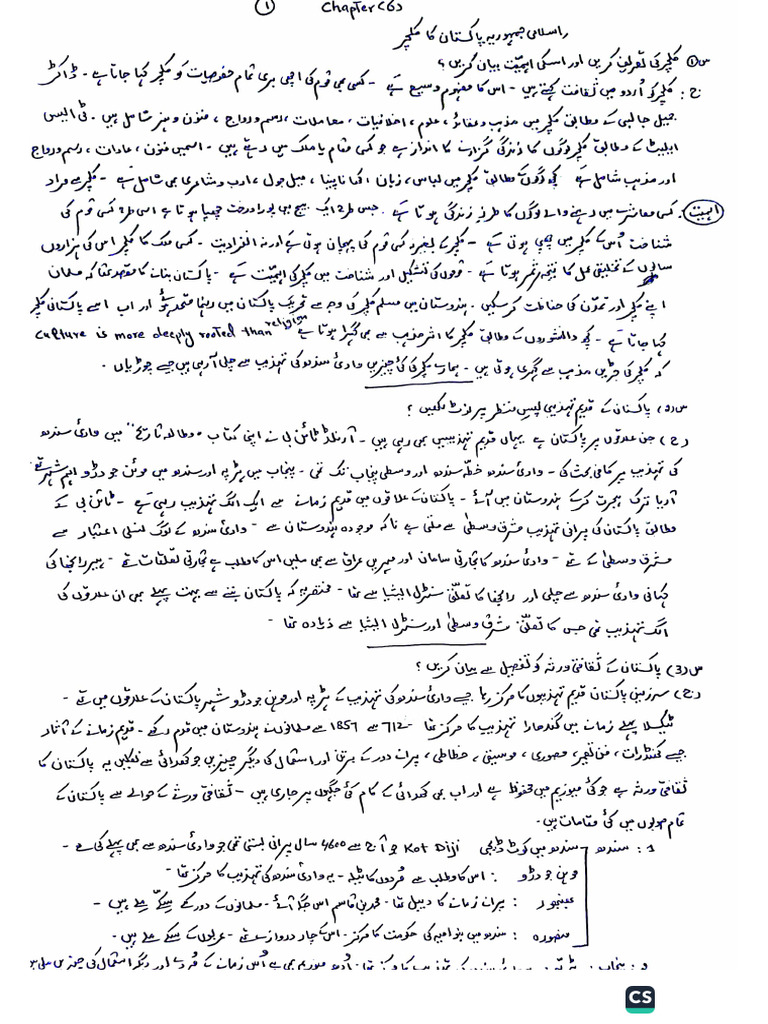 ① Chapter (6)
اسلامی جمہوریہ پاکستان کا کلچر
س① کلچر کی تعریف کریں اور اسکی اہمیّت بیان کریں؟
ج: کلچر کو اُردو میں ثقافت کہتے ہیں - اس کا مفہوم وسیع ہے - کسی بھی قوم کی اچھی بری تمام خصوصیات کو کلچر کہا جاتا ہے - ڈاکٹر
جمیل جالبی کے مطابق کلچر میں مذہب و عقائد، علوم، اخلاقیات، معاملات، رسم و رواج، فنون و ہنر شامل ہیں - ٹی ایس
ایلیٹ کے مطابق کلچر لوگوں کا زندگی گزارنے کا انداز ہے جو کسی مقام یا ملک میں رہتے ہیں - اسمیں فنون، عادات، رسم و رواج
اور مذہب شامل ہے کچھ لوگوں کے مطابق کلچر میں لباس، زبان، کھانا پینا، میل جول، ادب و شاعری بھی شامل ہے - کلچر سے مراد
کسی معاشرے میں رہنے والے لوگوں کا طرزِ زندگی ہوتا ہے
اہمیت : جس طرح ایک بیج میں پورا درخت چھپا ہوتا ہے اسی طرح کسی قوم کی
شناخت اُس کے کلچر میں چھپی ہوتی ہے - کلچر کے بغیر نہ کسی قوم کی پہچان ہوتی ہے اور نہ انفرادیت - کسی ملک کا کلچر اس کی ہزاروں
سالوں کے تخلیقی عمل کا نتیجہ ثمر ہوتا ہے - قوموں کی تشکیل اور شناخت میں کلچر کی اہمیّت ہے - پاکستان بنانے کا مقصد تھا کہ مسلمان
اپنے کلچر اور تمدّن کی حفاظت کر سکیں - ہندوستان میں مسلم کلچر کی وجہ سے تحریکِ پاکستان میں رہنما متحد ہوئے اور اب اسے پاکستانی کلچر
کہا جاتا ہے - کچھ دانشوروں کے مطابق کلچر کا اثر مذہب سے بھی گہرا ہوتا ہے culture is more deeply rooted than religion
کہ کلچر کی جڑیں مذہب سے گہری ہوتی ہیں - ہمارے کلچر کی کئی چیزیں وادیٔ سندھ کی تہذیب سے چلی آ رہی ہیں جیسے چوڑیاں
س(2) پاکستان کے قدیم تہذیبی پسِ منظر پر نوٹ لکھیں؟
(ج) جن علاقوں پر پاکستان ہے یہاں قدیم تہذیبیں بھی رہی ہیں - آرنلڈ ٹائن بی نے اپنی کتاب "مطالعہ تاریخ" میں وادیٔ سندھ
کی تہذیب پر کافی بحث کی - وادیٔ سندھ خطّہ سندھ اور وسطی پنجاب تک تھی - پنجاب میں ہڑپہ اور سندھ میں موئن جو دڑو اہم شہر تھے
آریا ترک ہجرت کر کے ہندوستان میں آئے - پاکستان کے علاقوں میں قدیم زمانے سے ایک الگ تہذیب رہی ہے - ٹائن بی کے
مطابق پاکستان کی پرانی تہذیب مشرقِ وسطیٰ سے ملتی ہے ناکہ موجودہ ہندوستان سے - وادیٔ سندھ کے لوگ نسلی اعتبار سے
مشرقِ وسطیٰ کے تھے - وادیٔ سندھ کا تجارتی سامان اور مہریں عراق سے بھی ملیں اس کا مطلب ہے تجارتی تعلقات تھے - ہیر رانجھا کی
کہانی وادیٔ سندھ سے چلی اور رانجھا کا تعلق سنٹرل ایشیا سے تھا - مختصر یہ کہ پاکستان بننے سے بہت پہلے بھی ان علاقوں کی
الگ تہذیب تھی جس کا تعلّق مشرقِ وسطیٰ اور سنٹرل ایشیا سے زیادہ تھا -
س(3) پاکستان کے ثقافتی ورثہ کو تفصیل سے بیان کریں؟
(ج) سرزمینِ پاکستان قدیم تہذیبوں کا مرکز رہا جیسے وادیٔ سندھ کی تہذیب کے ہڑپہ اور موہن جو دڑو شہر پاکستان کے علاقوں میں تھے -
ٹیکسلا پہلے زمانے میں گندھارا تہذیب کا مرکز تھا 712 سے 1857 سے مسلمانوں نے ہندوستان میں قدم رکھے - قدیم زمانے کے آثار
جیسے کھنڈرات، فنِ تعمیر، مصوری، موسیقی، خطاطی، پرانے دور کے برتن اور استعمال کی دیگر چیزیں جو کھدائی سے نکلیں یہ پاکستان کا
ثقافتی ورثہ ہے جو کئی میوزیم میں محفوظ ہے اور اب بھی کھدائی کے کام کئی جگہوں پر جاری ہیں - ثقافتی ورثے کے حوالے سے پاکستان کے
تمام صوبوں میں کئی مقامات ہیں
1: سندھ سندھ میں کوٹ ڈیجی Kot Diji جو آج سے 4600 سال پرانی بستی تھی جو وادیٔ سندھ سے بھی پہلے کی ہے -
موہن جو دڑو : اس کا مطلب ہے مُردوں کا ٹیلہ - یہ وادیٔ سندھ کی تہذیب کا مرکز تھا -
بھنبھور : پرانے زمانے کا دیبل تھا - محمد بن قاسم اس جگہ آئے - مسلمانوں کے دور کے سِکّے ملے ہیں -
منصورہ : سندھ میں بنو امیہ کی حکومت کا مرکز - اس کے چار دروازے تھے - عربوں کے سکے ملے ہیں -
CS